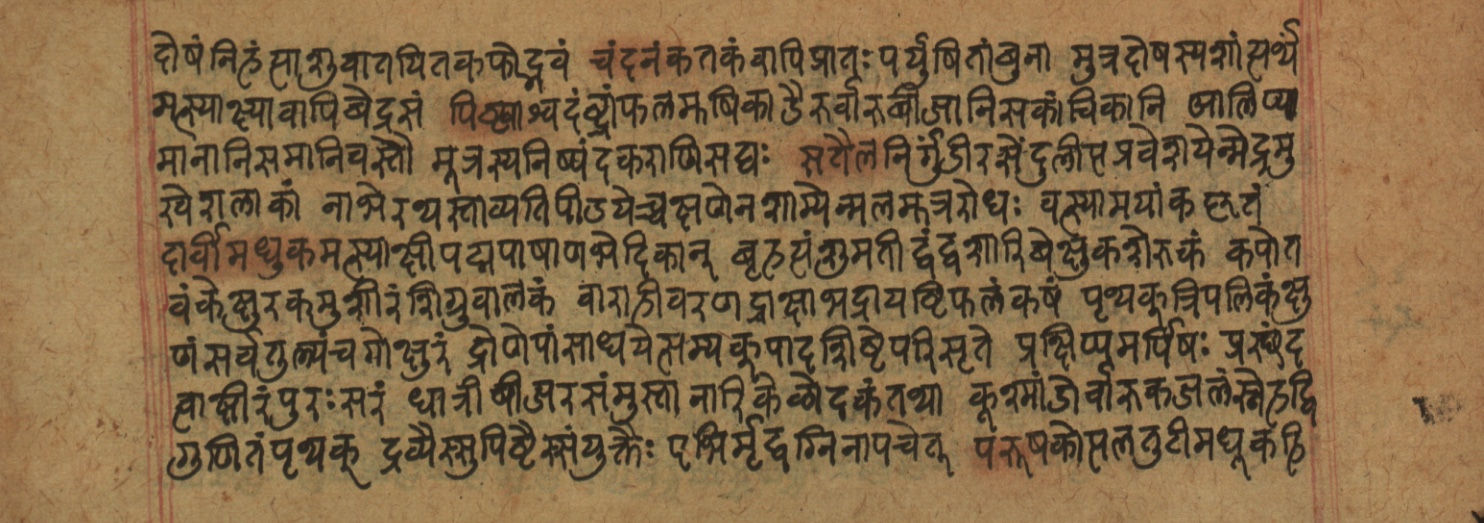 दोषं निहंत्याशु वातपित्तकफोद्भवं चंदनं कतकं वापि प्रातः पर्युषितांबुना मुत्रदोषस्य शांत्यर्थं
मत्स्याक्ष्या वा पिबेद्रसं पिष्ट्वाश्वदंष्ट्राफलमूषिकाउैर्वारुबीजानि सकांचिकानि आलिप्य
मानानि समानि वस्तौ मूत्रस्य निष्यंदकराणि सद्यः सतैलनिर्गुंडीरसेंदुलीप्त प्रवेशयेन्मेद्रमु
खे शलाकां नाभेरथस्ताव्यतिपीडयेच्च क्षणेन शाम्येन्मलमूत्ररोधः पत्स्यामयांकहृतं
दार्वीमधुकमत्स्याक्षीपद्मपाषाणभेदिकान् बृहत्यंशुमतीद्वंद्वशारिबेक्षुकशेरुकं कपोत
वंकेक्षुरकमुशीरं शिग्रुवालकं वाराहीवरणद्राक्षाभद्रायष्टिफलंकषं पृथक् त्रिपलिकं क्षु
णं सर्वतुल्यं च गोक्षुरं द्रोणेपां साधयेत्सम्यक् पादशिष्टे परिसृते प्रक्षिप्य सर्पिषः प्रस्थंद
त्वा क्षीरं पुरःसरं धात्रीबीजरसं मुस्ता नारिकेळोदकं तथा कूश्मांडोर्वारुकजलं स्नेहद्वि
गुणितं पृथक् द्रव्यैस्सुपिष्टैस्संयुक्तैः एभिर्मृद्वग्निना पचेत् परूषकोत्पलतुटीमधूकं हि